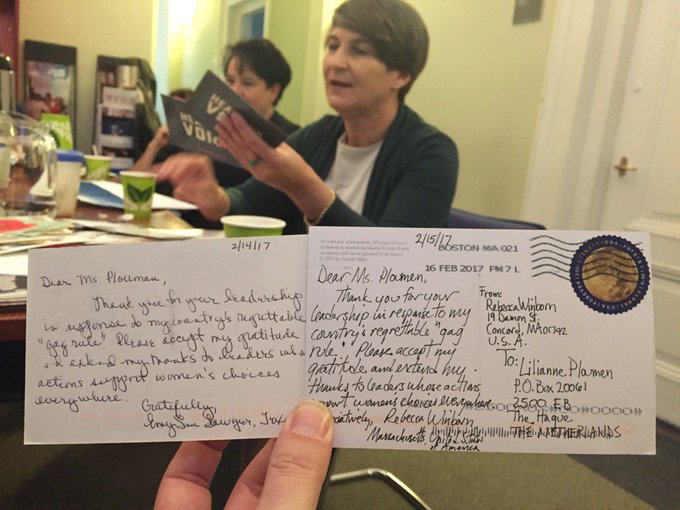 HEA
VOI
2/14/17
Dear Ms. Ploumen,
Thank you for your leadership
in response to my country's regrettable
"gag rule." Please accept my gratitude
& extend my thanks to leaders who
actions support women's choices
everywhere.
Gratefully,
Sawyer,
2/15/17
Dear Ms. Ploumen,
Thank you for your
leadership in response to my
country's regrettable "gag
rule." Please accept my
gratitude and extend my
thanks to leaders whose actions
support women's choices everywhere.
Rebecca Winborn
Massachusetts, United States
of America
BOSTON MA 021
16 FEB 2017 PM 7 L
From:
Rebecca Winborn
19 Damon St.
Concord, MA 01742
U.S.A.
To: Lilianne Ploumen
P.O. Box 20061
2500 EB
The Hague
THE NETHERLANDS